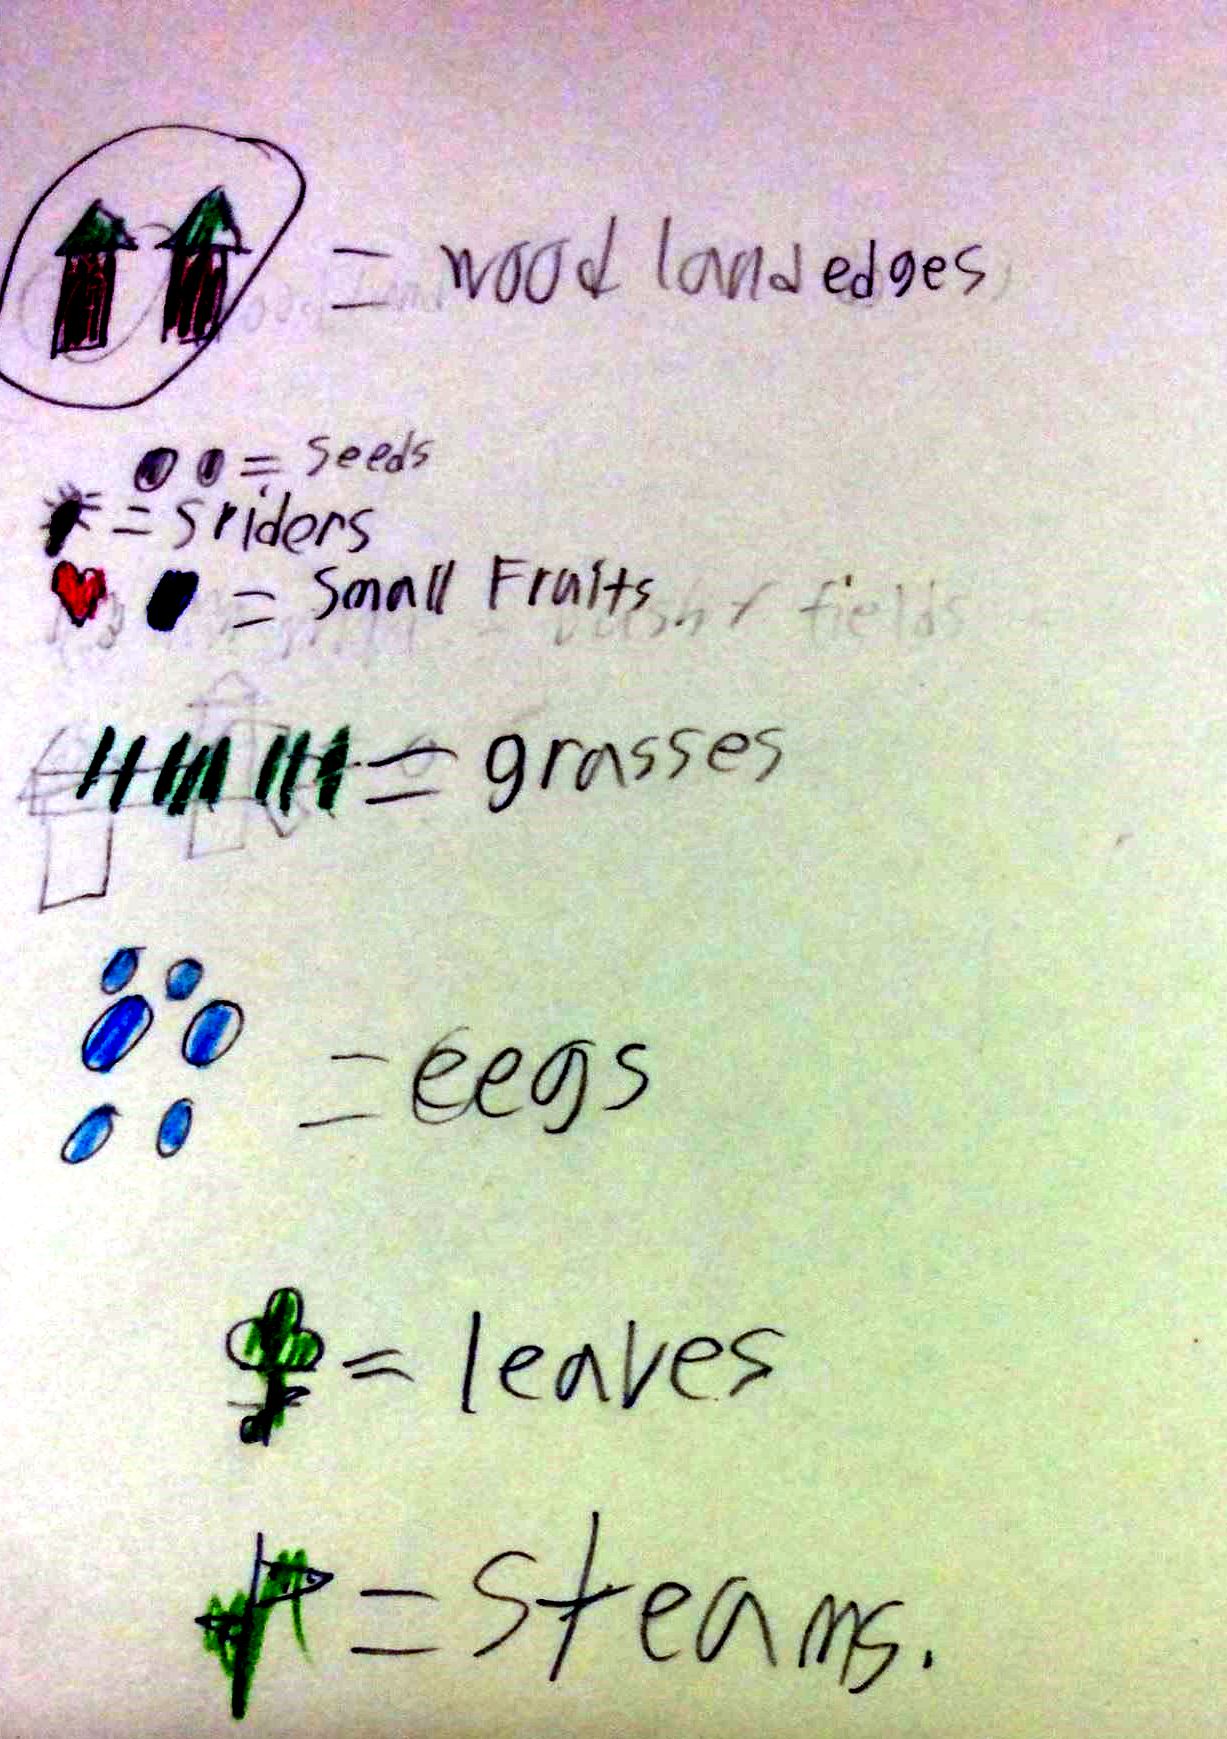 = wood land edges
= seeds
= spiders
= Small Fruits
fields
= grasses
= eegs
= leaves
= steams.